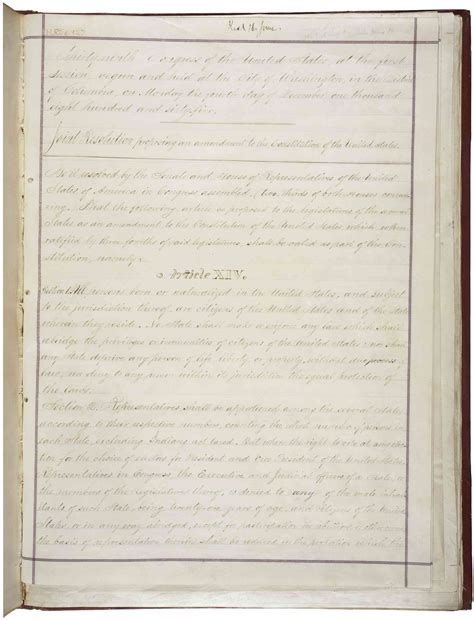 Thirty-ninth Congress of the United States, at the first
Session, begun and held at the City of Washington, in the District
of Columbia, on Monday the fourth day of December, one thousand
eight hundred and sixty-five.
Joint Resolution proposing an amendment to the Constitution of the United States.
Be it resolved by the Senate and House of Representatives of the United
States of America in Congress assembled, (two thirds of both Houses concur-
ring,) That the following article be proposed to the legislatures of the several
States as an amendment to the Constitution of the United States, which, when
ratified by three fourths of said legislatures, shall be valid as part of the Con-
stitution, namely:
Article XIV.
Section 1. All persons born or naturalized in the United States, and subject
to the jurisdiction thereof, are citizens of the United States and of the State
wherein they reside. No State shall make or enforce any law which shall
abridge the privileges or immunities of citizens of the United States; nor shall
any State deprive any person of life, liberty, or property, without due process
law; nor deny to any person within its jurisdiction the equal protection of
the laws.
Section 2. Representatives shall be apportioned among the several States
according to their respective numbers, counting the whole number of persons in
each State, excluding Indians not taxed. But when the right to vote at any elec-
tion for the choice of electors for President and Vice President of the United States,
Representatives in Congress, the Executive and Judicial officers of a State, or
the members of the Legislature thereof, is denied to any of the male inhabi-
tants of such State, being twenty-one years of age, and citizens of the United
States, or in any way abridged, except for participation in rebellion, or other
the basis of representation therein shall be reduced in the proportion which the